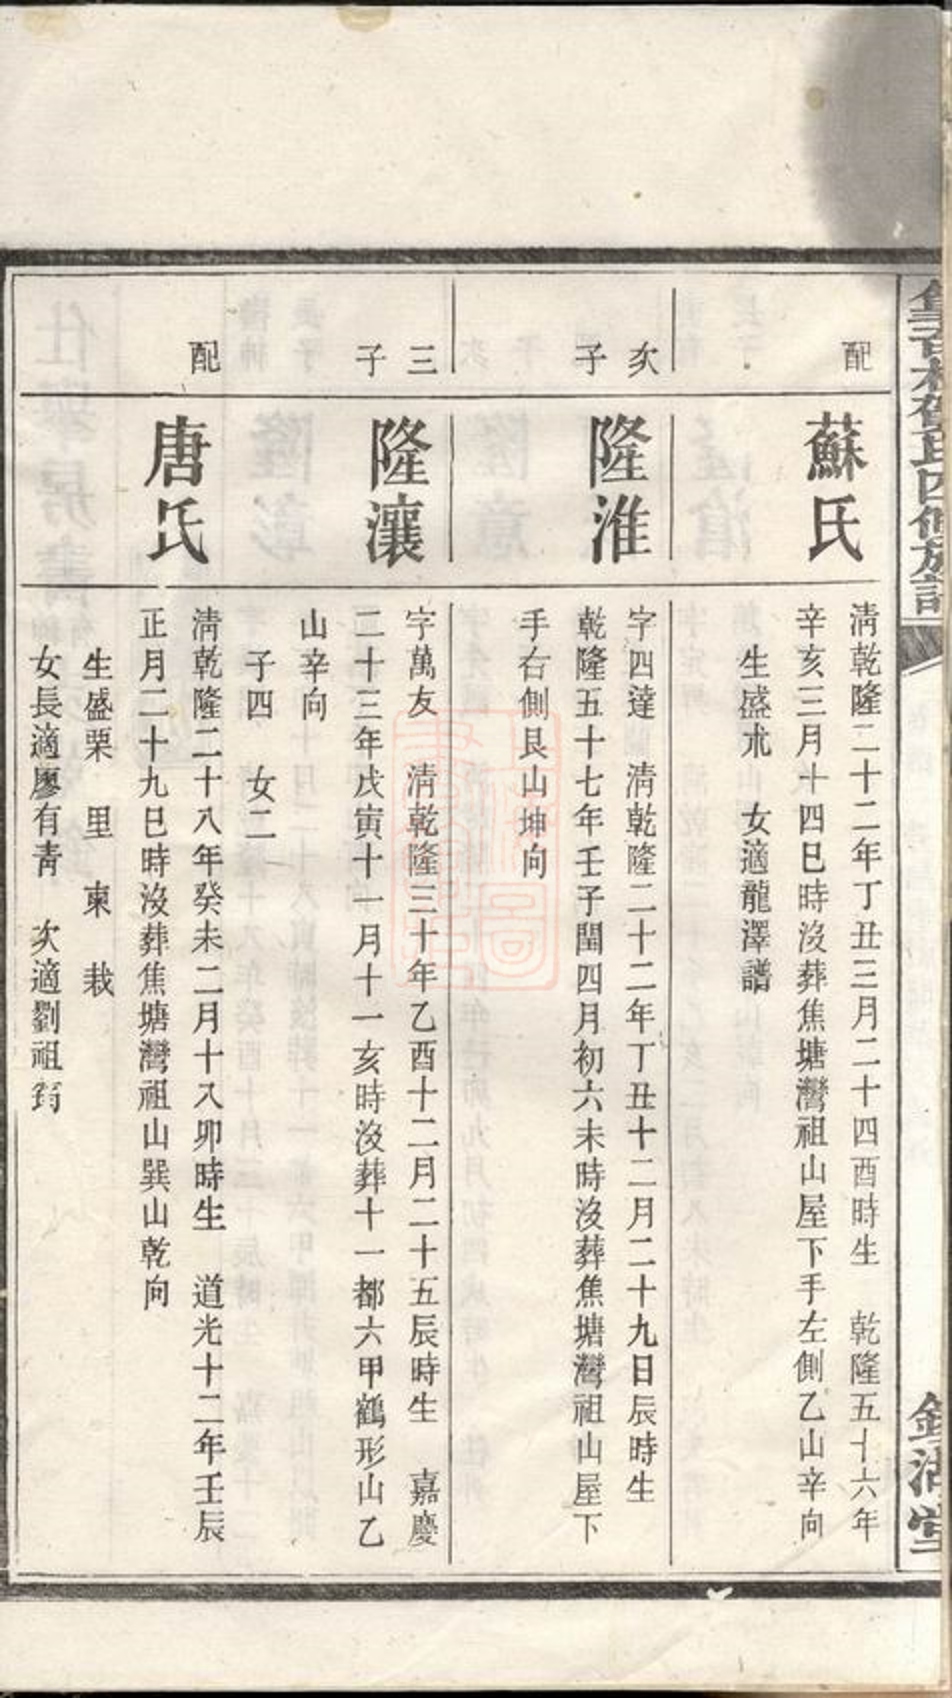 配
蘇氏
淸乾隆二十二年丁丑三月二十四酉時生　乾隆五十六年
辛亥三月十四巳時沒葬焦塘灣祖山屋下手左側乙山辛向
生盛朮　女適龍澤譜
次子
隆淮
字四達　淸乾隆二十二年丁丑十二月二十九日辰時生
乾隆五十七年壬子閏四月初六未時沒葬焦塘灣祖山屋下
手右側艮山坤向
三子
隆瀼
字萬友　淸乾隆三十年乙酉十二月二十五辰時生　嘉慶
二十三年戊寅十一月十一亥時沒葬十一都六甲鶴形山乙
山辛向
子四　女二
配
唐氏
淸乾隆二十八年癸未二月十八卯時生　道光十二年壬辰
正月二十九巳時沒葬焦塘灣祖山巽山乾向
生盛栗　里　柬　栽
女長適廖有靑　次適劉祖筠